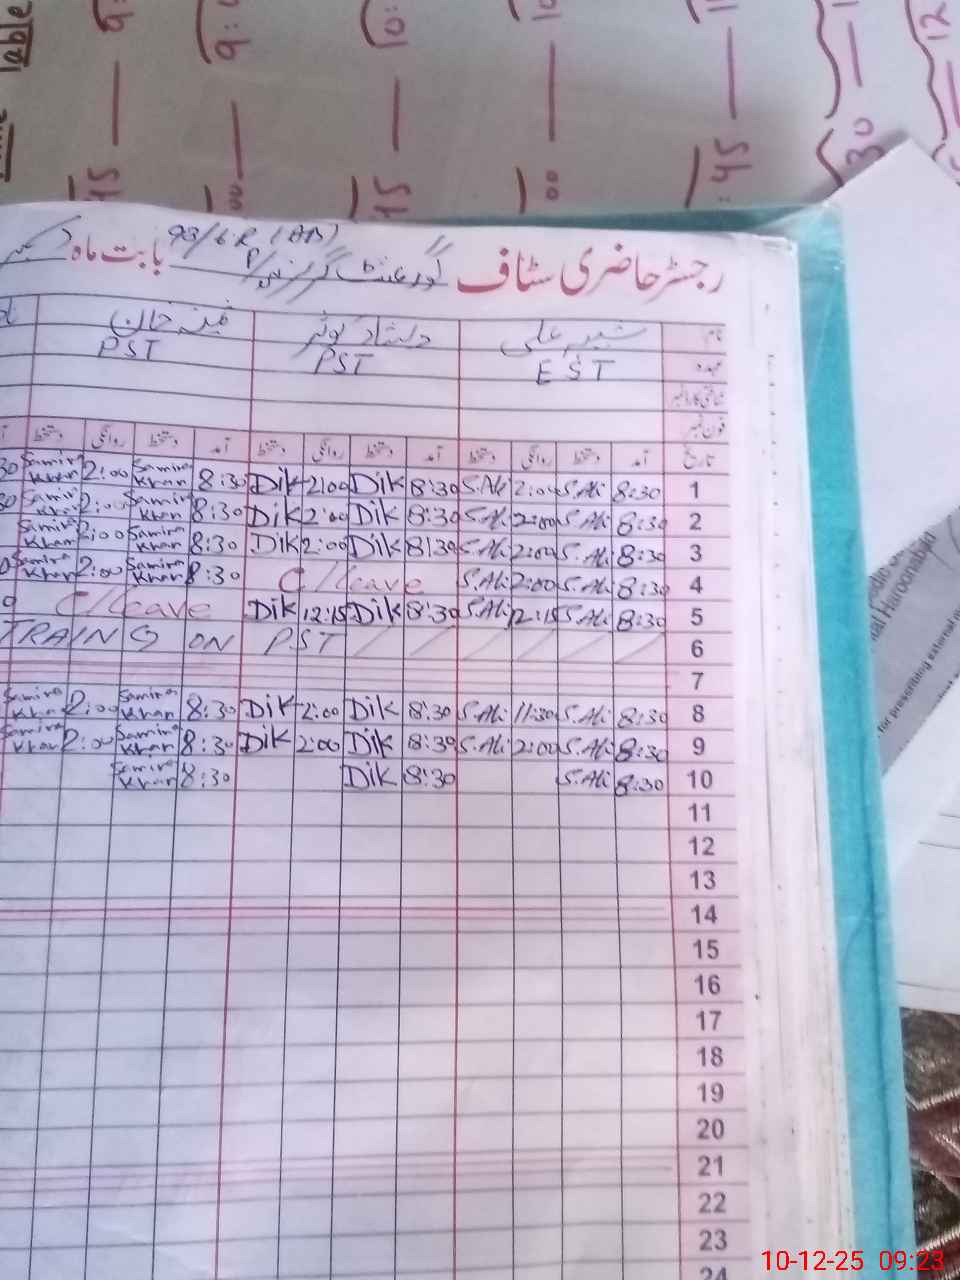 Table
9:
9:
10:
45
00
15
00
:45
30
12
98/6R
رجسٹر حاضری سٹاف گورنمنٹ گرلز بابت ماہ دسمبر
نام شبیر علی دلشاد کوثر خان
عہدہ EST PST PST
شناختی کارڈ نمبر
فون نمبر
تاریخ آمد دستخط روانگی دستخط آمد دستخط روانگی دستخط آمد دستخط روانگی دستخط
1 8:30 S.Ali 2:00 S.Ali 8:30 Dik 2:00 Dik 8:30 Samira Khan 2:00 Samira Khan 30
2 8:30 S.Ali 2:00 S.Ali 8:30 Dik 2:00 Dik 8:30 Samira Khan 2:00 Samira Khan 30
3 8:30 S.Ali 2:00 S.Ali 8:30 Dik 2:00 Dik 8:30 Samira Khan 2:00 Samira Khan
4 8:30 S.Ali 2:00 S.Ali C/leave 8:30 Samira Khan 2:00 Samira Khan 0
5 8:30 S.Ali 12:15 S.Ali 8:30 Dik 12:15 Dik C/leave
6 TRAINING ON PST
7
8 8:30 S.Ali 11:30 S.Ali 8:30 Dik 2:00 Dik 8:30 Samira Khan 2:00 Samira Khan
9 8:30 S.Ali 2:00 S.Ali 8:30 Dik 2:00 Dik 8:30 Samira Khan 2:00 Samira Khan
10 8:30 S.Ali 8:30 Dik 8:30 Samira Khan
11
12
13
14
15
16
17
18
19
20
21
22
23
24
al Haroonabad
for presenting external
10-12-25 09:23